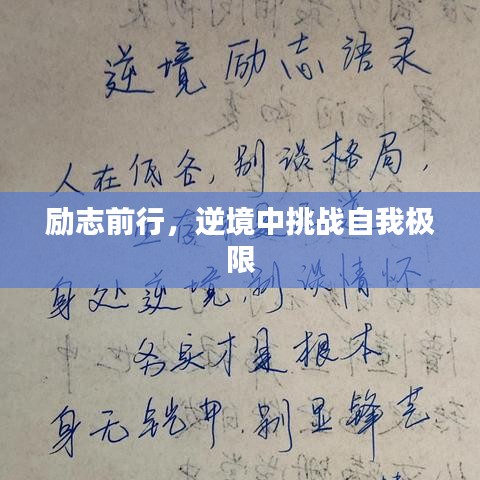 逆境励志语录
人在低谷,别谈格局,
励志前行，逆境中挑战自我极
限
身处逆境,别谈情怀
务实才是根本.
身无铠甲.别显锋芒